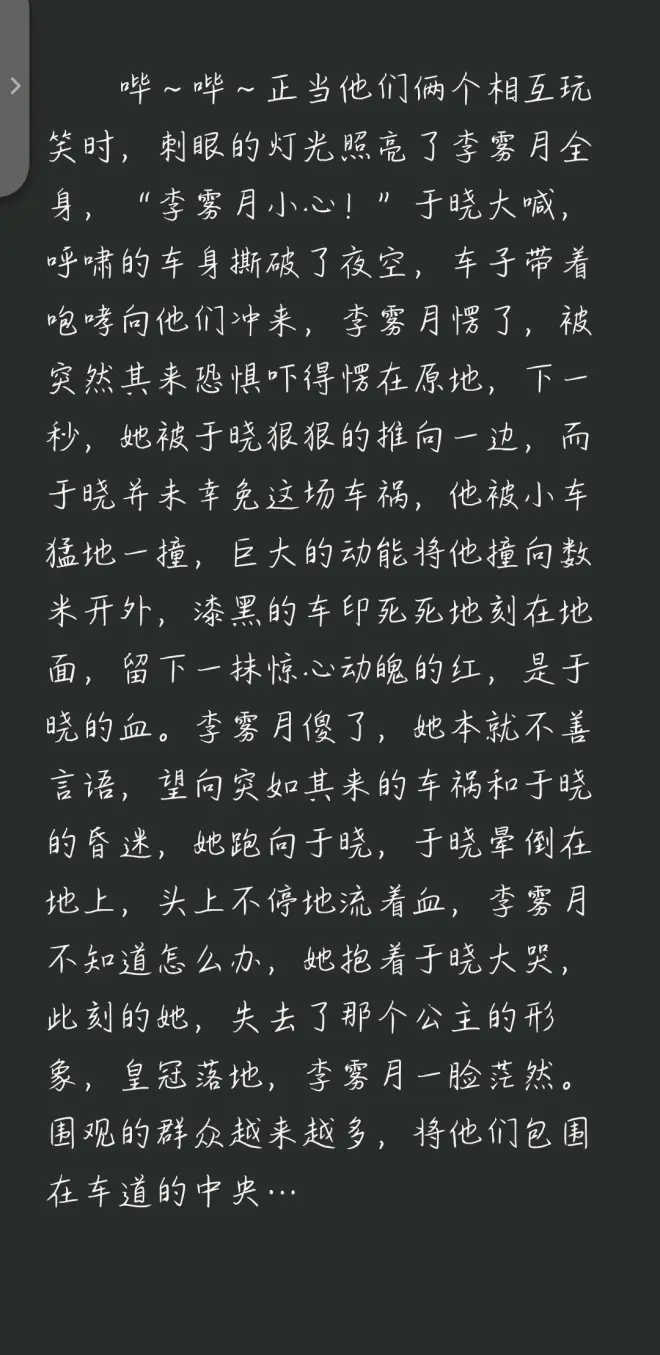 哔~哔~正当他们俩个相互玩
笑时，刺眼的灯光照亮了李雾月全
身，“李雾月小心！”于晓大喊，
呼啸的车身撕破了夜空，车子带着
咆哮向他们冲来，李雾月愣了，被
突然其来恐惧吓得愣在原地，下一
秒，她被于晓狠狠的推向一边，而
于晓并未幸免这场车祸，他被小车
猛地一撞，巨大的动能将他撞向数
米开外，漆黑的车印死死地刻在地
面，留下一抹惊心动魄的红，是于
晓的血。李雾月傻了，她本就不善
言语，望向突如其来的车祸和于晓
的昏迷，她跑向于晓，于晓晕倒在
地上，头上不停地流着血，李雾月
不知道怎么办，她抱着于晓大哭，
此刻的她，失去了那个公主的形
象，皇冠落地，李雾月一脸茫然。
围观的群众越来越多，将他们包围
在车道的中央…